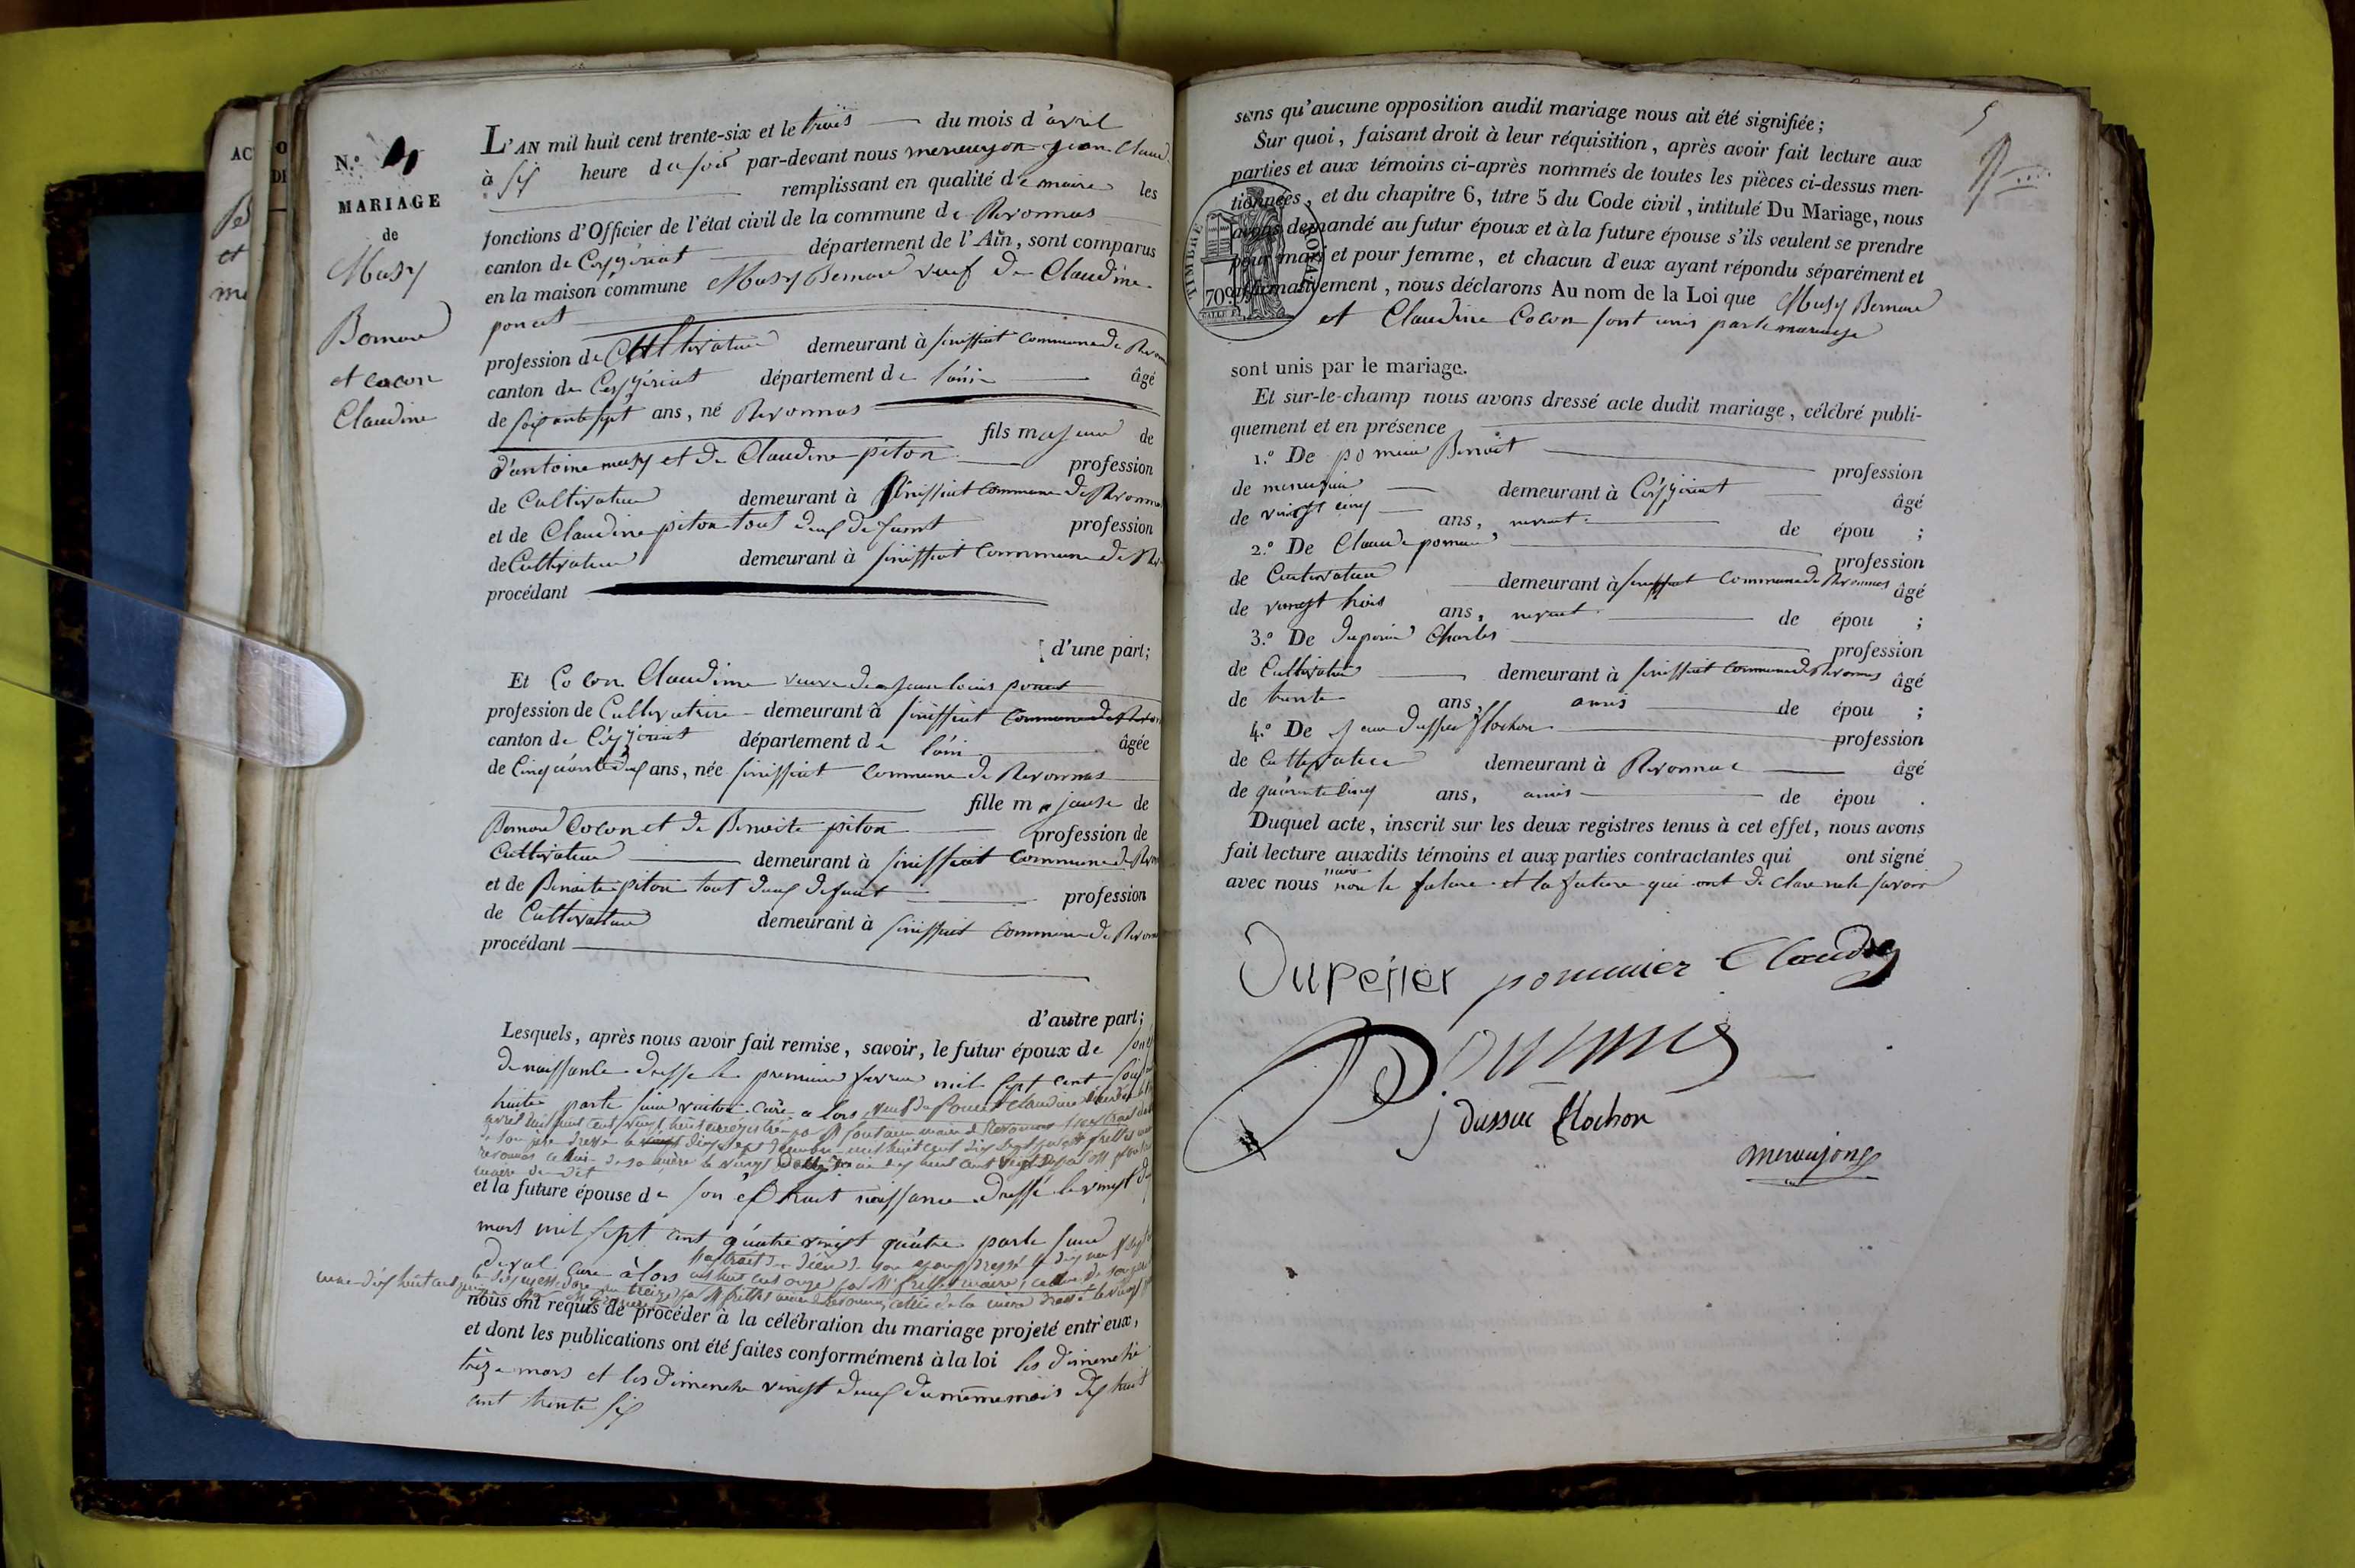 N.º 4
MARIAGE
de
Musy
Bernard
et cocon
Claudine
L'AN mil huit cent trente-six et le trois du mois d'avril
à six heure du soir par-devant nous mercujon jean Claude
remplissant en qualité de maire les
fonctions d'Officier de l'état civil de la commune de Revonnas
canton de Ceyzeriat département de l'Ain, sont comparus
en la maison commune Musy Bernard veuf de Claudine
poncet
profession de Cultivateur demeurant à sénissiat commune de Revonnas
canton de Ceyzeriat département de l'ain âgé
de soixante sept ans, né Revonnas
fils majeur de
d'antoine musy et de Claudine piton profession
de Cultivateur demeurant à sénissiat commune de Revonnas
et de Claudine piton tout deux defunt profession
de Cultivateur demeurant à sinissiat commune de Rev
procédant
d'une part;
Et Cocon Claudine veuve de jean louis poncet
profession de Cultivatrice demeurant à sinissiat commune de Revon
canton de Ceyzeriat département de l'ain âgée
de Cinquante deux ans, née sinissiat commune de Revonnas
fille majeure de
Bernard Cocon et de Benoite piton profession de
Cultivateur demeurant à sinissiat commune de Rev
et de Benoite piton tout deux defunt profession
de Cultivateur demeurant à sinissiat commune de Revon
procédant
d'autre part;
Lesquels, après nous avoir fait remise, savoir, le futur époux de son
de naissance dressé le premier fevrier mil sept cent soix
huite par le sieur curé a lors veuf de Poncet Claudine
avril mil huit cent vingt huit enregistré maire de Revonnas
de son père dressé le dix sept mil huit cent dix sept
revonnas celui de sa mère le vingt
maire du dit
et la future épouse de son extrait naissance dressé le vingt d
mars mil sept cent quatre vingt quatre par le sieur
deval curé à lors l'extrait de décès de son epoux dressé le dix
mil huit cent onze par Mr maire, celui de son père
treize par Mr maire de Revonnas, celui de la mère dressé le vingt
nous ont requis de procéder à la célébration du mariage projeté entr'eux,
et dont les publications ont été faites conformément à la loi les dimenche
treize mars et les dimenche vingt deux du même mois dix huit
cent trente six
5
sans qu'aucune opposition audit mariage nous ait été signifiée;
Sur quoi, faisant droit à leur réquisition, après avoir fait lecture aux
parties et aux témoins ci-après nommés de toutes les pièces ci-dessus men-
tionnées, et du chapitre 6, titre 5 du Code civil, intitulé Du Mariage, nous
avons demandé au futur époux et à la future épouse s'ils veulent se prendre
pour mari et pour femme, et chacun d'eux ayant répondu séparément et
affirmativement, nous déclarons Au nom de la Loi que Musy Bernard
et Claudine Cocon sont unis par le mariage
TIMBRE ROYAL
70 c
sont unis par le mariage.
Et sur-le-champ nous avons dressé acte dudit mariage, célébré publi-
quement et en présence
1.º De pomier Benoit profession
de menuisier demeurant à Ceyzeriat âgé
de vingt cinq ans, de épou ;
2.º De Claude pomier profession
de Cultivateur demeurant à sinissiat commune de Revonnas âgé
de vingt trois ans, de épou ;
3.º De duperier Charles profession
de Cultivateur demeurant à sinissiat commune de Revonnas âgé
de trente ans, amis de épou ;
4.º De jean dussuc flochon profession
de Cultivateur demeurant à Revonnas âgé
de quarante cinq ans, amis de épou .
Duquel acte, inscrit sur les deux registres tenus à cet effet, nous avons
fait lecture auxdits témoins et aux parties contractantes qui ont signé
avec nous maire non le future et la future qui ont declare ne le savoir
Duperier pommier Claude
Pommier
j dussuc flochon
mercujong